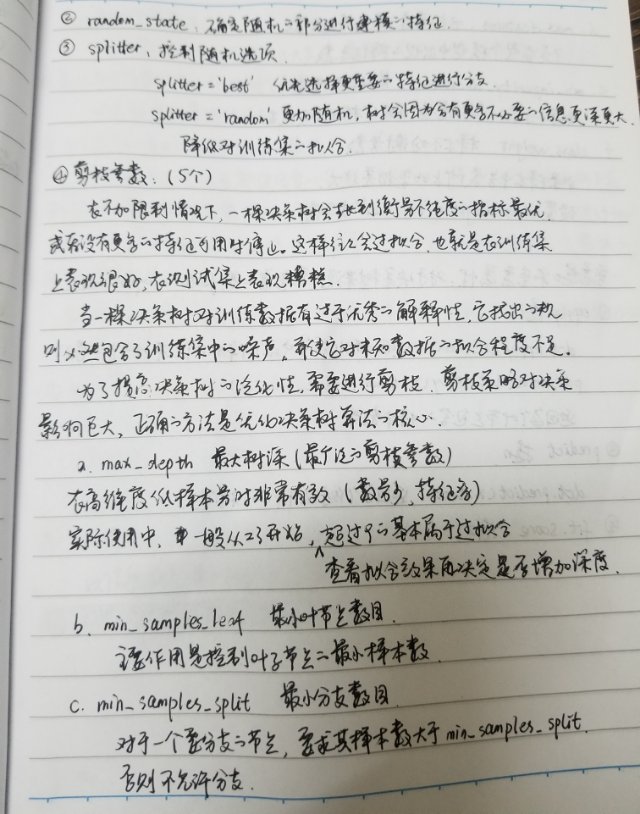 ② random_state, 不确定随机的部分进行建模的特征
③ splitter, 控制随机选项
splitter='best' 优先选择更重要的特征进行分支.
splitter='random' 更加随机, 树会因为含有更多不必要的信息更深更大,
降低对训练集的拟合.
④ 剪枝参数. (5个)
在不加限制情况下, 一棵决策树会长到衡量不纯度的指标最优,
或者没有更多的特征可用时停止. 这样往往会过拟合, 也就是在训练集
上表现很好, 在测试集上表现糟糕.
当一棵决策树对训练数据有过于优秀的解释性, 它找出的规
则必然包含了训练集中的噪声, 并使它对未知数据的拟合程度不足.
为了提高决策树的泛化性, 需要进行剪枝. 剪枝策略对决策
影响巨大, 正确的方法是优化决策树算法的核心.
a. max_depth 最大树深 (最广泛的剪枝参数)
在高维度低样本量时非常有效 (数量少, 特征多)
实际使用中, 一般从=3开始, 超过9的基本属于过拟合
查看拟合效果再决定是否增加深度.
b. min_samples_leaf 最小叶节点数目.
主要作用是控制叶子节点的最小样本数.
c. min_samples_split 最小分支数目.
对于一个要分支的节点, 要求其样本数大于min_samples_split.
否则不允许分支.